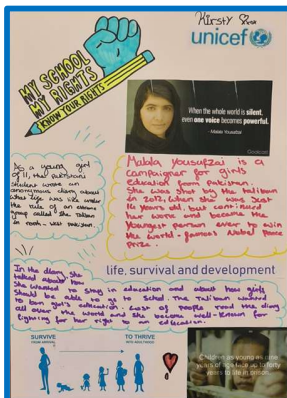 Kirsty
unicef
MY SCHOOL
MY RIGHTS
KNOW YOUR RIGHTS
When the whole world is silent,
even one voice becomes powerful.
-Malala Yousafzai
As a young girl
of 11, the Pakistani
student wrote an
anonymous diary about
what life was like under
the rule of an extreme
group called the Taliban
in north-west Pakistan.
Malala Yousafzai is a
campaigner for girls
education from Pakistan.
She was shot by the Taliban
in 2012, when she was just
but continued
her work and became the
youngest person ever to win
the world-famous Nobel Peace
Prize.
life, survival and development
In the diary, she
talked about how
she wanted to stay in education and about how girls
should be able to go to School. The Taliban wanted
to ban girls education. Lost of people read the diary
all over the world and she became well-known for
fighting for her right to an education.
SURVIVE
TO THRIVE
INTO ADULTHOOD
Children as young as nine
years of age face up to forty
years to life in prison.